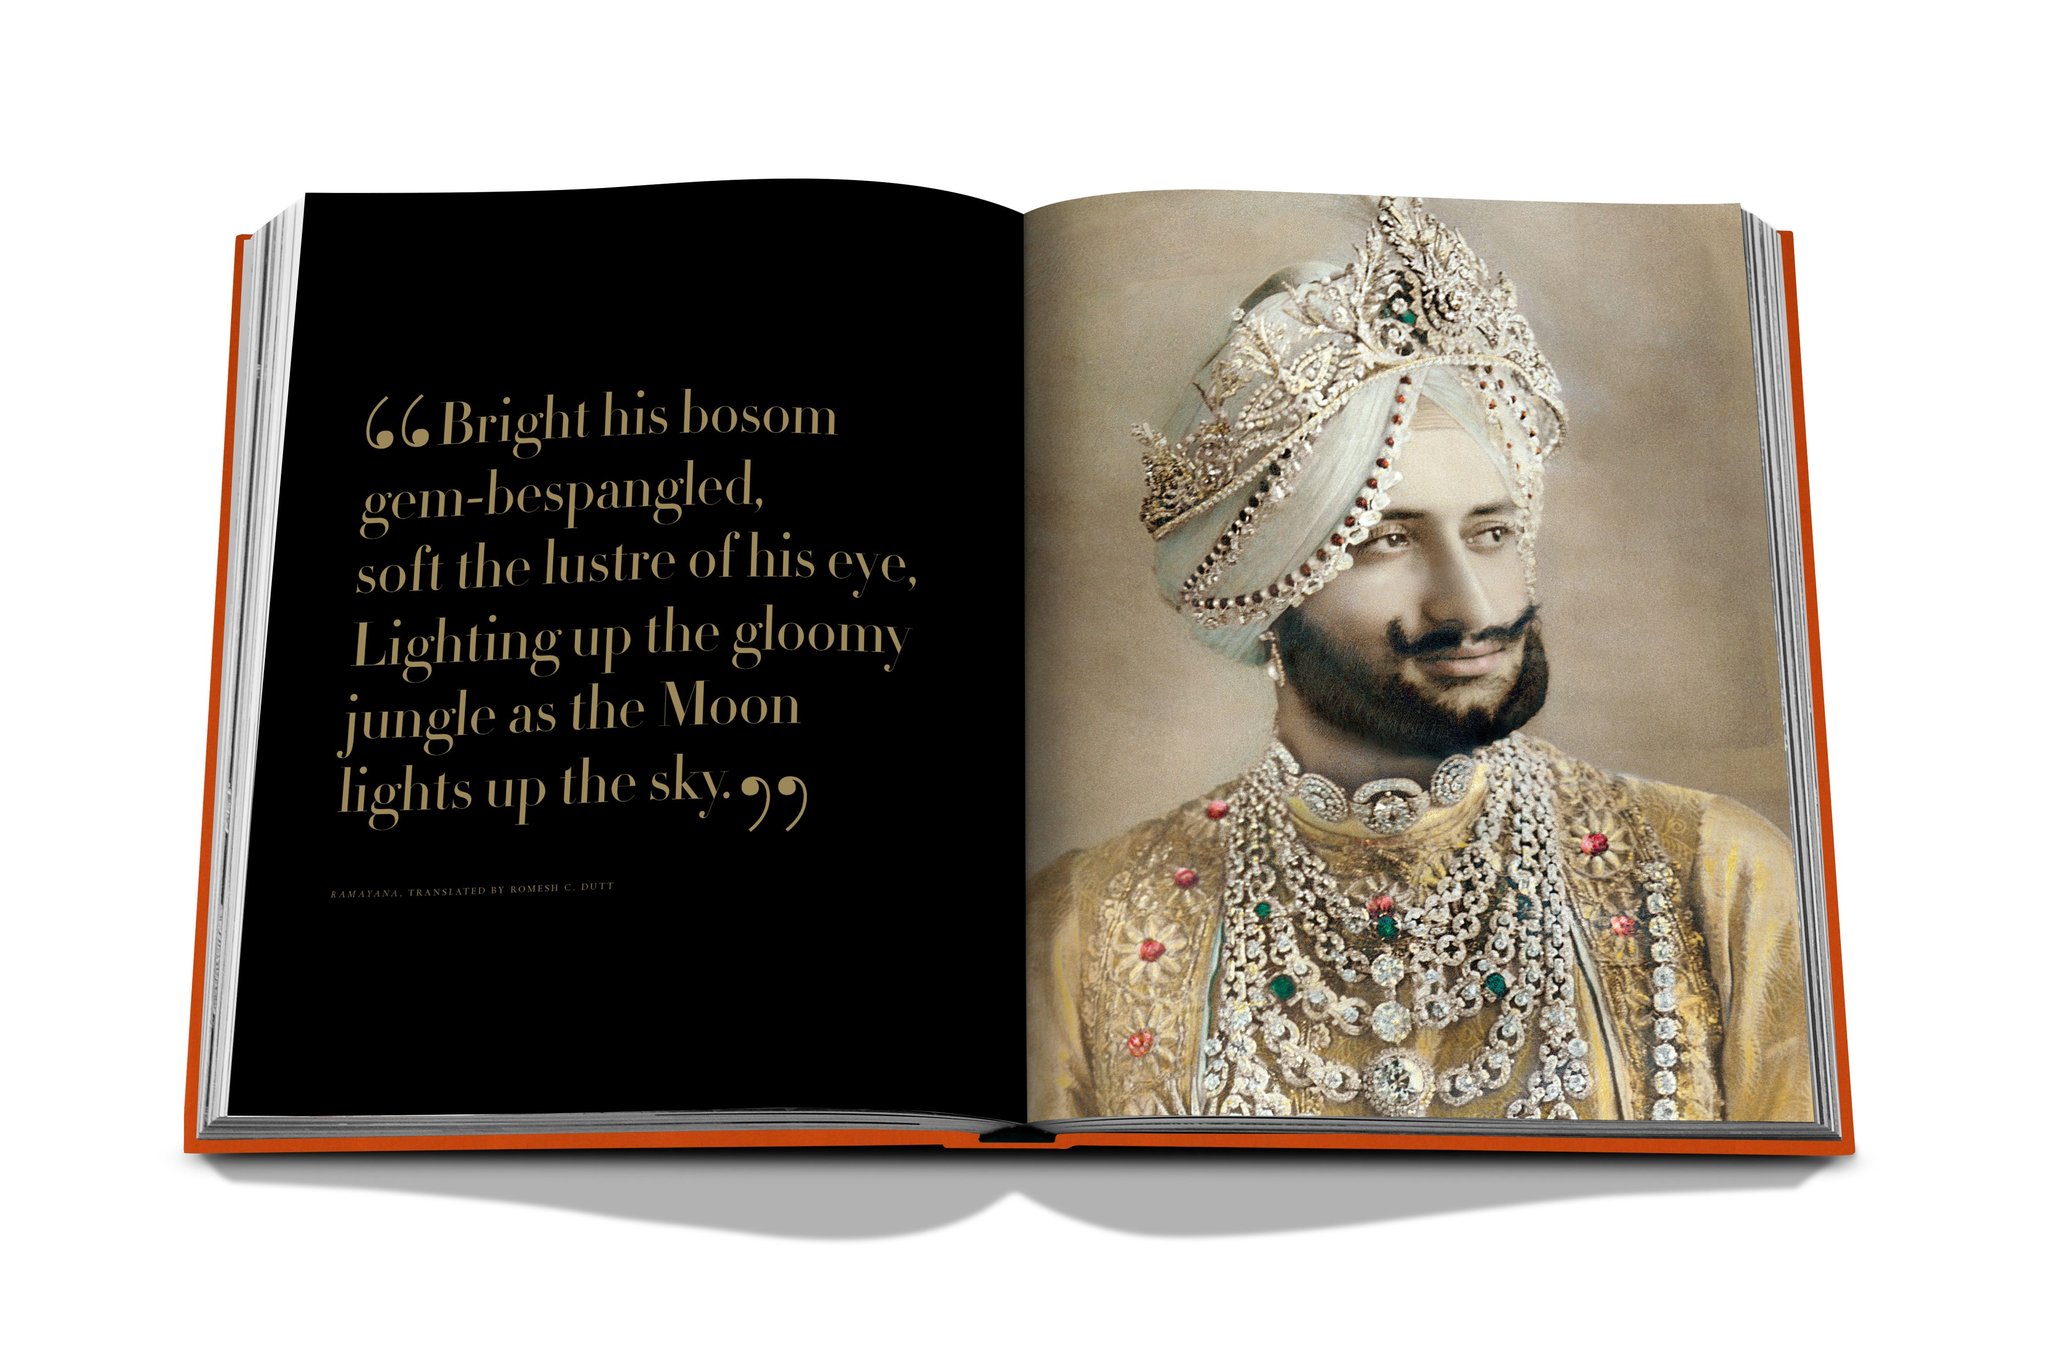 “Bright his bosom
gem-bespangled,
soft the lustre of his eye,
Lighting up the gloomy
jungle as the Moon
lights up the sky.”
RAMAYANA, TRANSLATED BY ROMESH C. DUTT